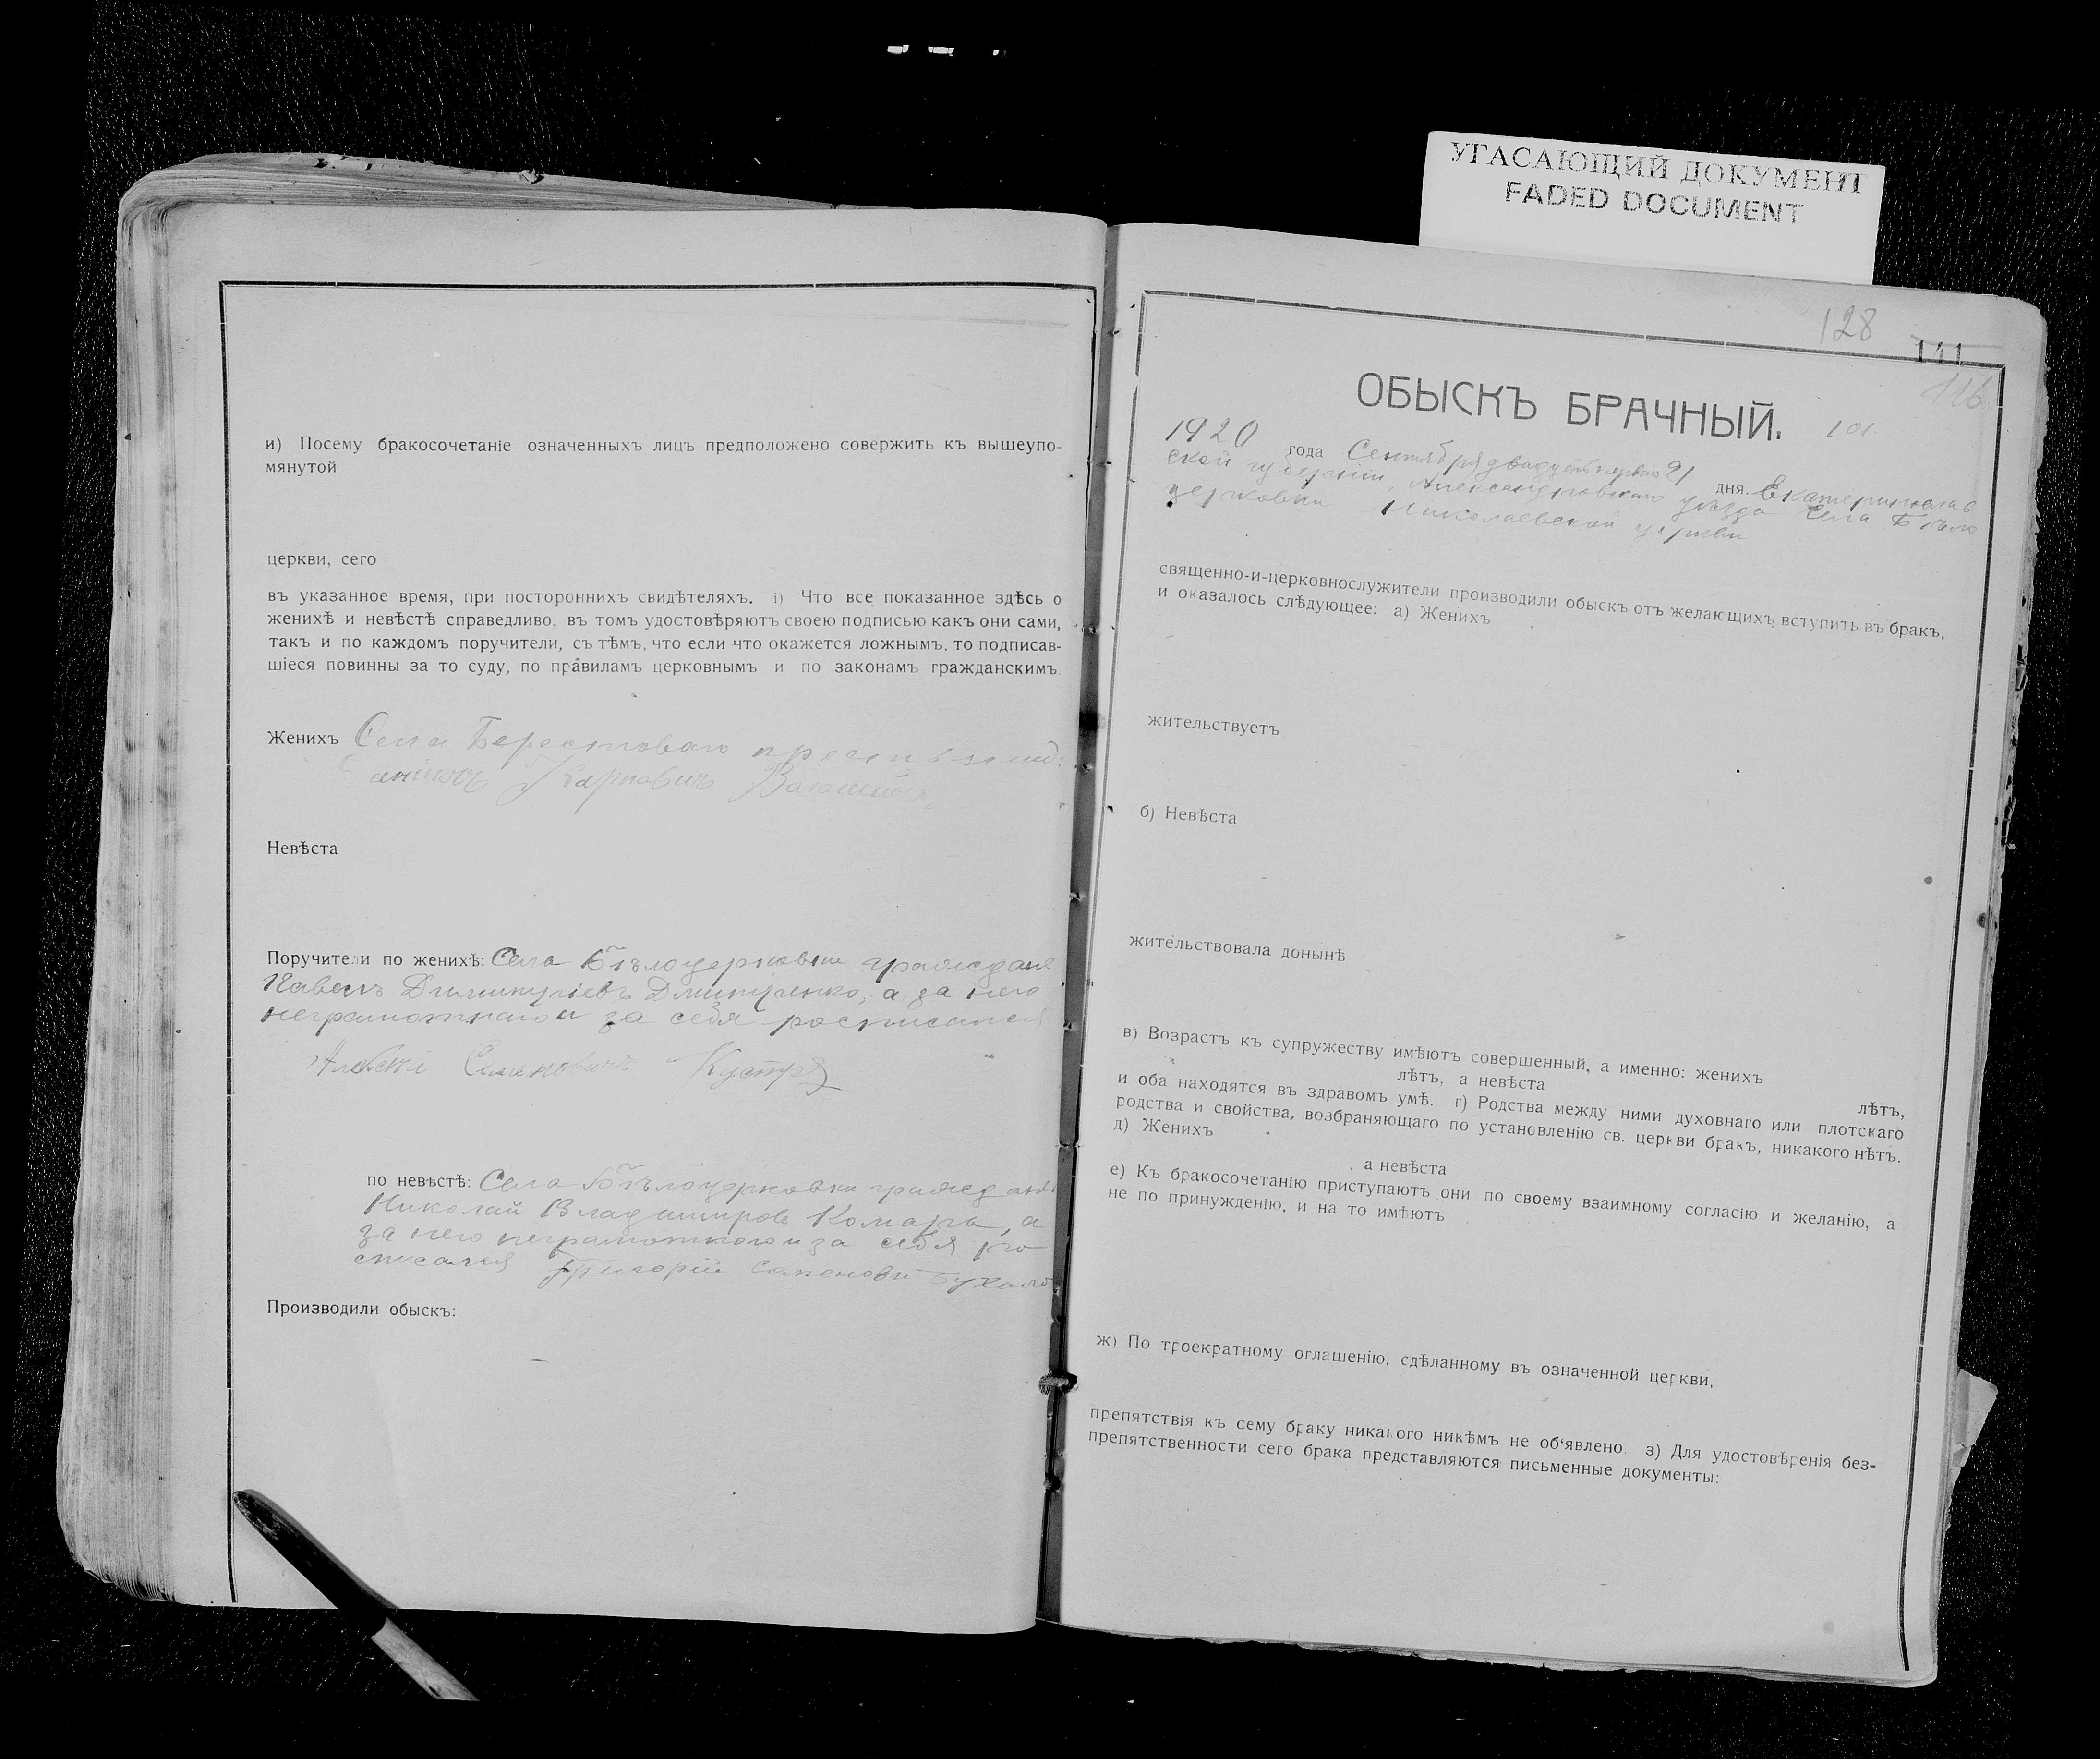 УГАСАЮЩИЙ ДОКУМЕНТ
FADED DOCUMENT
и) Посему бракосочетаніе означенныхъ лицъ предположено совержить къ вышеупо-
мянутой
церкви, сего
въ указанное время, при постороннихъ свидѣтеляхъ. і) Что все показанное здѣсь о
женихѣ и невѣстѣ справедливо, въ томъ удостовѣряютъ своею подписью какъ они сами,
такъ и по каждомъ поручители, съ тѣмъ, что если что окажется ложнымъ, то подписав-
шіеся повинны за то суду, по правиламъ церковнымъ и по законамъ гражданскимъ.
Женихъ Села Берестоваго
Карповичъ
Невѣста
Поручители по женихѣ: Села Бѣлоцерковки граждане
Павелъ Димитріевъ Дмитренко, а за него
неграмотнаго и за себя росписался
Алексѣй Семеновичъ Кустря
по невѣстѣ: Села Бѣлоцерковки граждане
Николай Владимировъ Комаръ, а
за него неграмотного и за себя ро
списался Григорій Семеновъ
Производили обыскъ:
128
141
116
ОБЫСКЪ БРАЧНЫЙ. 101
1920 года Сентября двадцать перваго 21 дня. Екатеринослав
ской губерніи, Александровскаго уѣзда Села Бѣло
церковки Николаевской церкви
священно-и-церковнослужители производили обыскъ отъ желающихъ вступить въ бракъ,
и оказалось слѣдующее: а) Женихъ
жительствуетъ
б) Невѣста
жительствовала донынѣ
в) Возрастъ къ супружеству имѣютъ совершенный, а именно: женихъ
лѣтъ, а невѣста лѣтъ,
и оба находятся въ здравомъ умѣ. г) Родства между ними духовнаго или плотскаго
родства и свойства, возбраняющаго по установленію св. церкви бракъ, никакого нѣтъ.
д) Женихъ
а невѣста
е) Къ бракосочетанію приступаютъ они по своему взаимному согласію и желанію, а
не по принужденію, и на то имѣютъ
ж) По троекратному оглашенію, сдѣланному въ означенной церкви,
препятствія къ сему браку никакого никѣмъ не об‘явлено. з) Для удостовѣренія без-
препятственности сего брака представляются письменные документы: